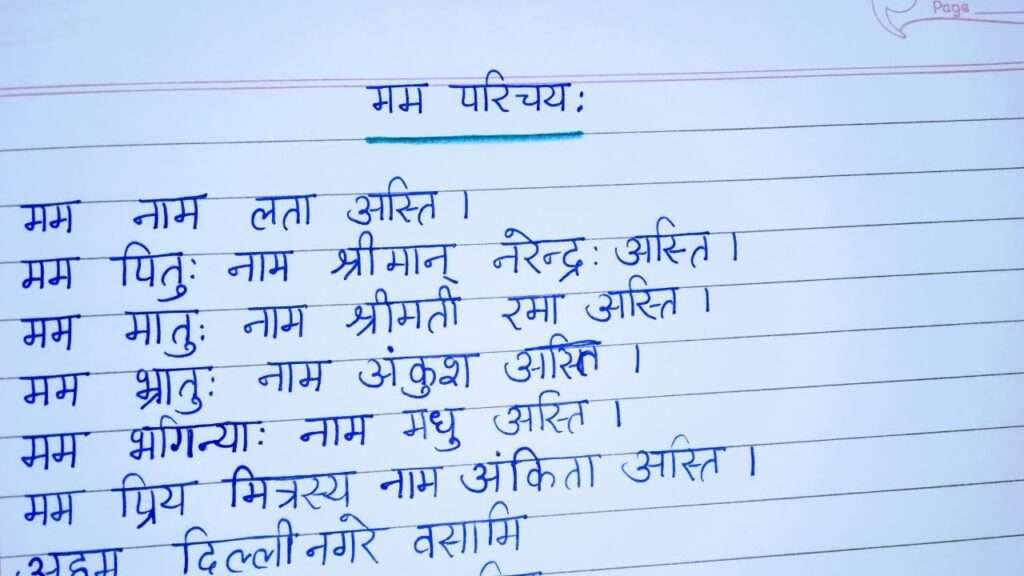 Page
मम परिचय:
मम नाम लता अस्ति ।
मम पितु: नाम श्रीमान् नरेन्द्र: अस्ति ।
मम मातु: नाम श्रीमती रमा अस्ति ।
मम भ्रातु: नाम अंकुश अस्ति ।
मम भगिन्या: नाम मधु अस्ति ।
मम प्रिय मित्रस्य नाम अंकिता अस्ति ।
अहम दिल्लीनगरे वसामि